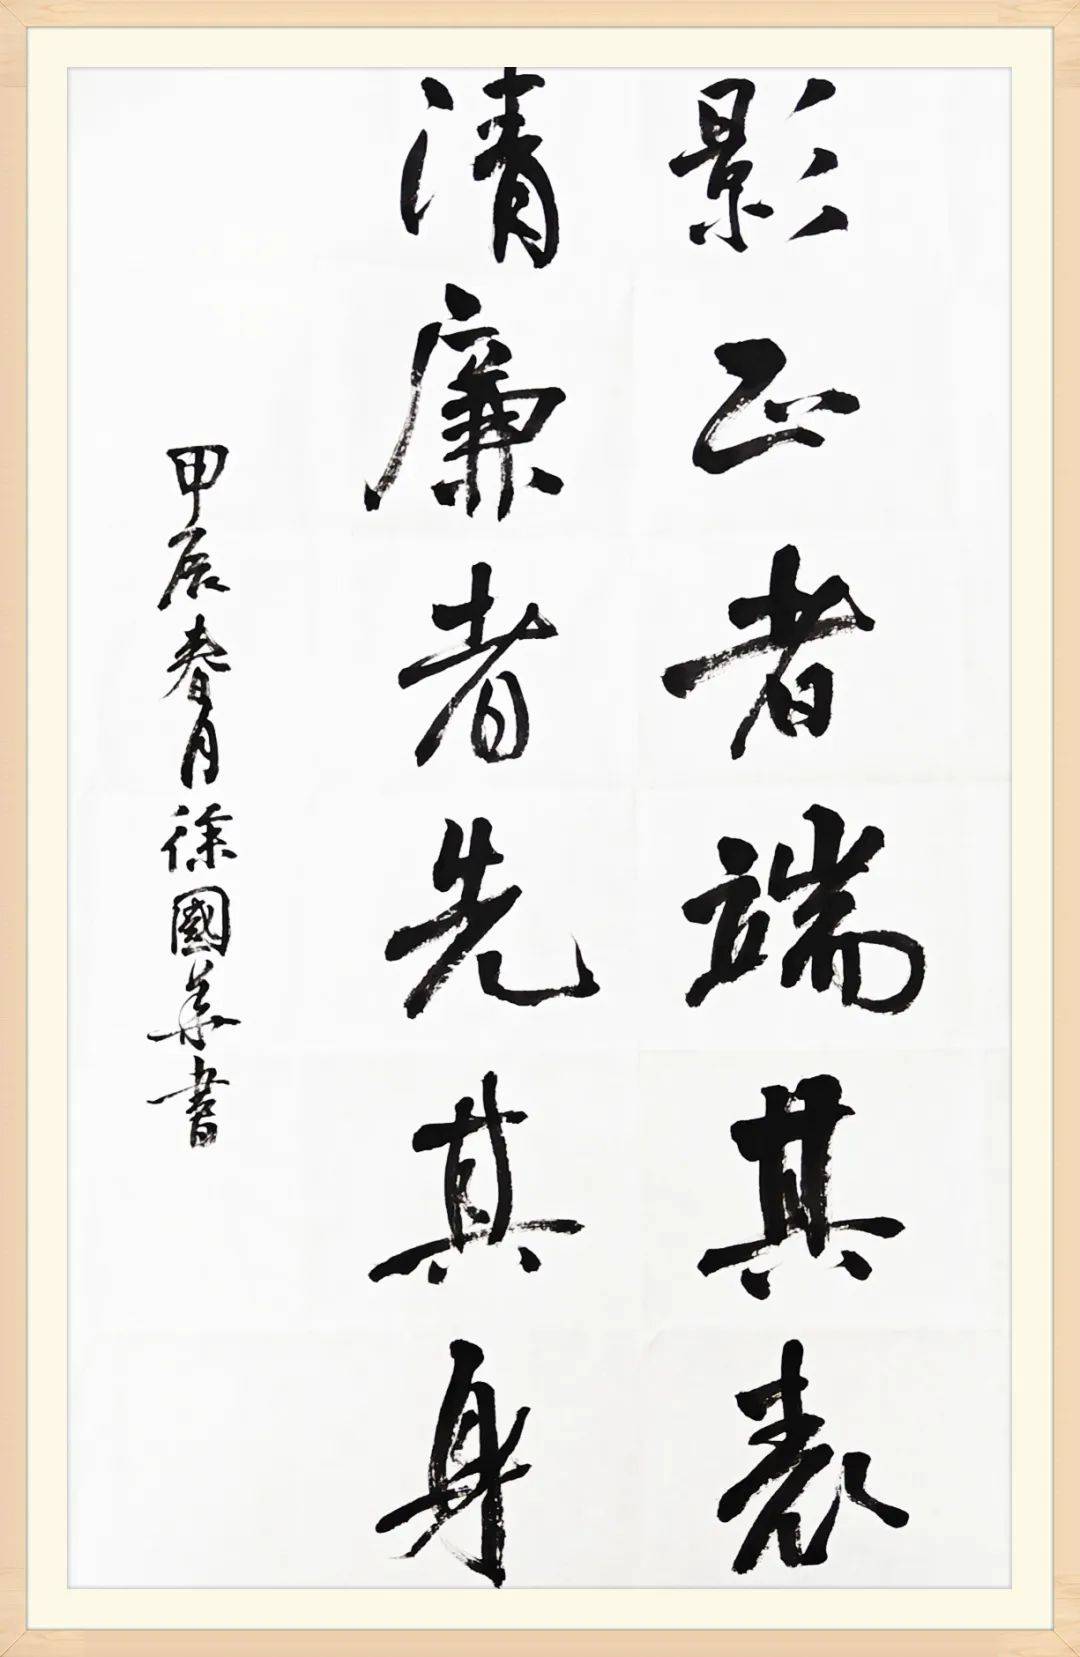 影正者端其表
清廉者先其身
甲辰春月徐國華書